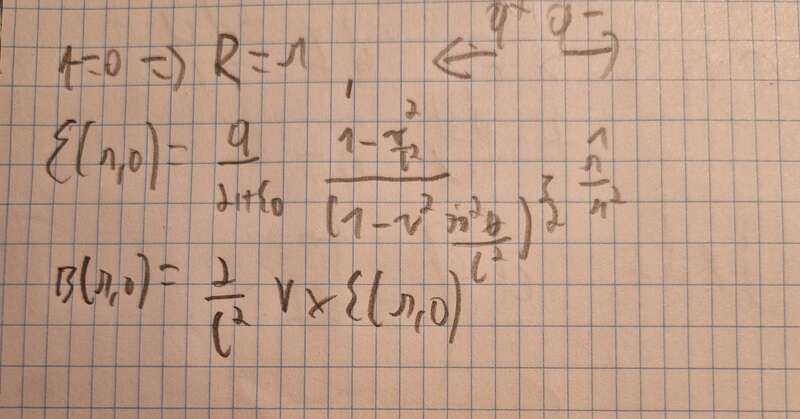 t=0 => R=r, ← q+ q- →
E(r,0) = q/2πε0 (1-v²/c²)/(1-v² sin²θ/c²)^3/2 r̂/r²
B(r,0) = 1/c² v×E(r,0)